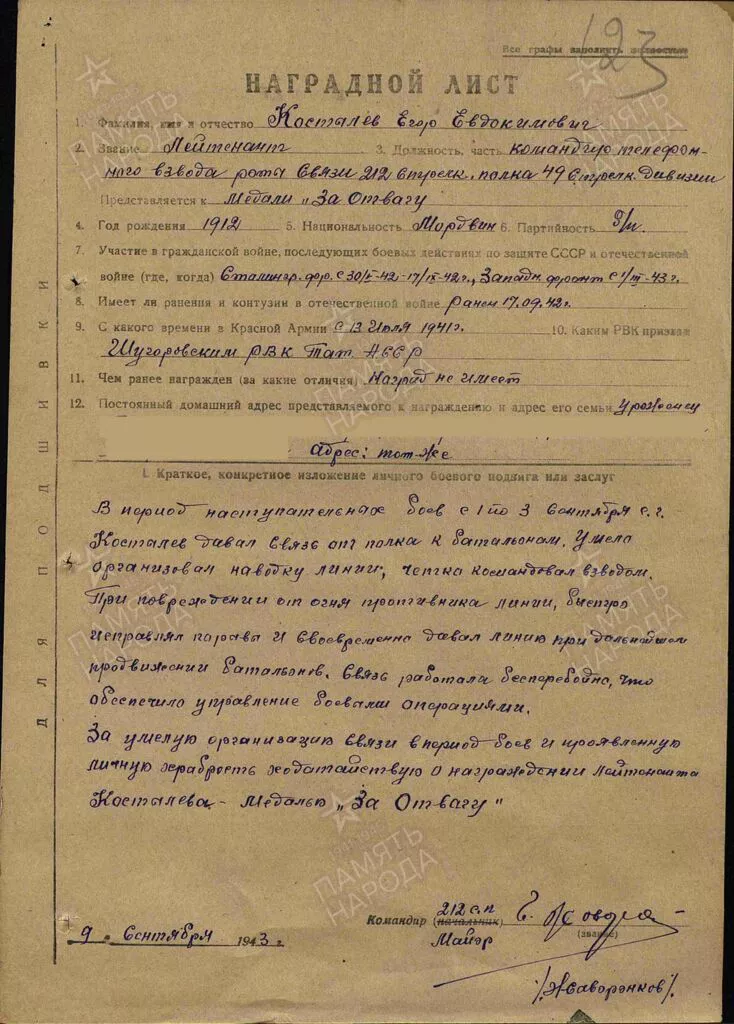 123
Все графы заполнить полностью
НАГРАДНОЙ ЛИСТ
1. Фамилия, имя и отчество Косталев Егор Евдокимович
2. Звание Лейтенант 3. Должность, часть командир телефон-
ного взвода роты связи 212 стрелк. полка 49 стрелк. дивизии
Представляется к Медали „За Отвагу
4. Год рождения 1912 5. Национальность Мордвин 6. Партийность б/п.
7. Участие в гражданской войне, последующих боевых действиях по защите СССР и отечественной
войне (где, когда) Сталингр. фр. с 30/ -42-17/IX-42г., Западн. фронт с 1/III-43г.
8. Имеет ли ранения и контузии в отечественной войне Ранен 17.09.42г.
9. С какого времени в Красной Армии с 13 Июля 1941г. 10. Каким РВК призван
Шугоровским РВК Тат. АССР
11. Чем ранее награжден (за какие отличия) Наград не имеет
12. Постоянный домашний адрес представляемого к награждению и адрес его семьи урожениц
Адрес: тот-же
I. Краткое, конкретное изложение личного боевого подвига или заслуг
В период наступательных боев с 1 по 3 Сентября с.г.
Косталев давал связь от полка к батальонам. Умело
организовал наводку линии, четко командовал взводом.
При повреждении от огня противника линии, быстро
исправлял порывы и своевременно давал линию при дальнейшем
продвижении батальонов. Связь работала бесперебойно, что
обеспечило управление боевыми операциями.
За умелую организацию связи в период боев и проявленную
личную храбрость ходатайствую о награждении Лейтенанта
Косталева - Медалью „За Отвагу"
Командир (начальник) 212 с.п
Майор
(звание)
9. Сентября 1943 г.
ДЛЯ ПОДШИВКИ
ПАМЯТЬ НАРОДА
ПАМЯТЬ НАРОДА
ПАМЯТЬ НАРОДА
ПАМЯТЬ НАРОДА
ПАМЯТЬ НАРОДА
ПАМЯТЬ НАРОДА